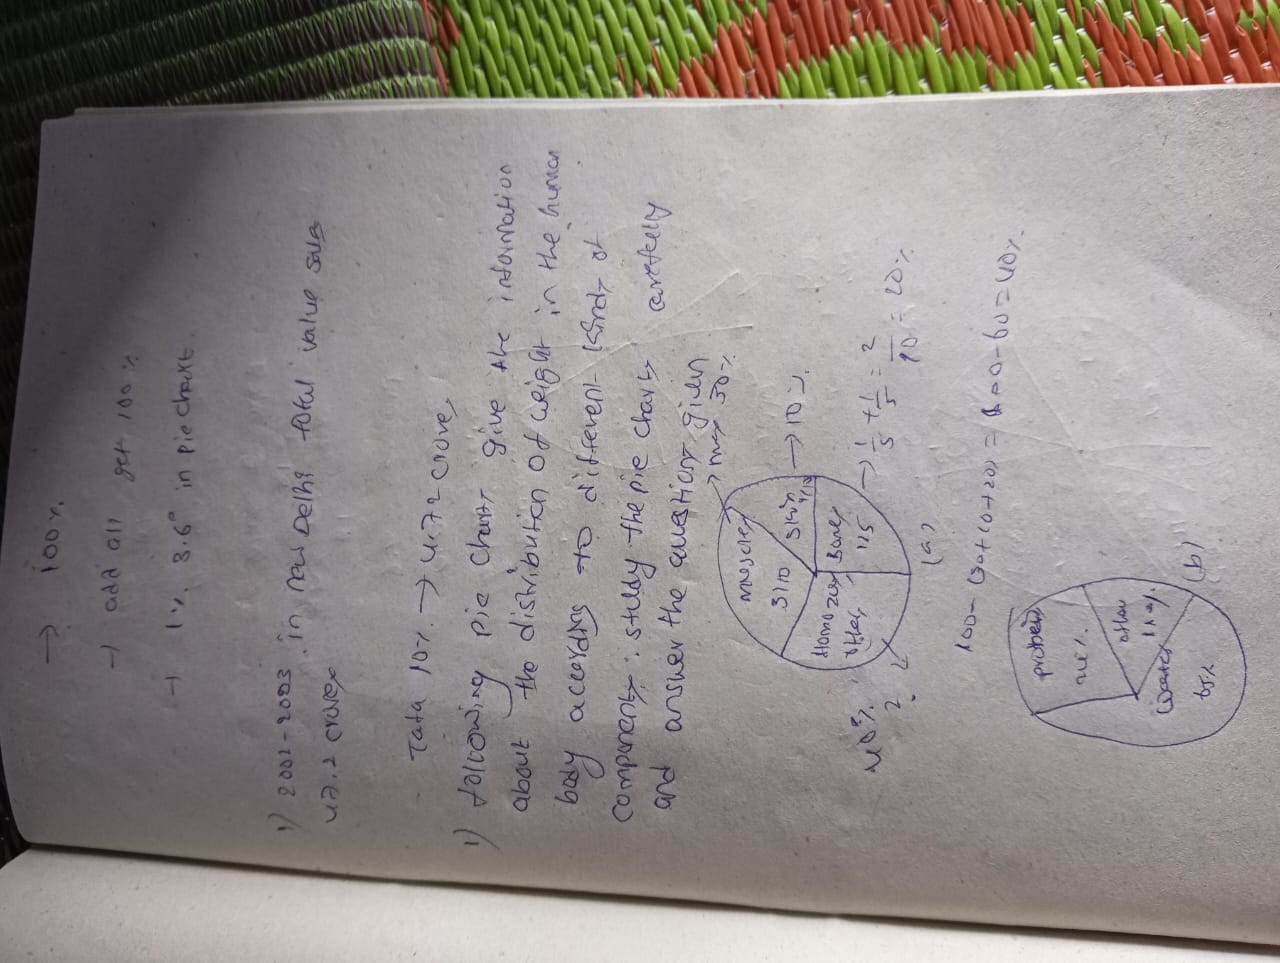 → 100%.
→ add all get 100%
→ 1% 3.6° in pie chart.
1) 2002-2003 in new Delhi total value sales
47.2 crores
Tata 10% → 4.72 crore,
1) following pie charts give the information
about the distribution of weight in the human
body according to different kinds of
components. study the pie charts carefully
and answer the question given
→ 30%.
muscles
3/10
skin
1/10
→ 10%.
Bones
1/5
→ 1/5 + 1/5 = 2/10 = 20%.
other
40%.
2.
(a)
100 - (30+10+20) = 100-60 = 40%.
protein
other
water
(b)